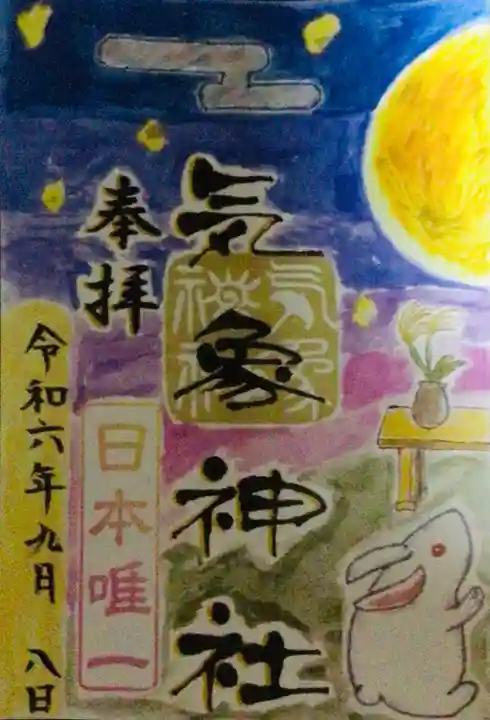 気象神社
気象神社
奉拝
日本唯一
令和六年九月 八日